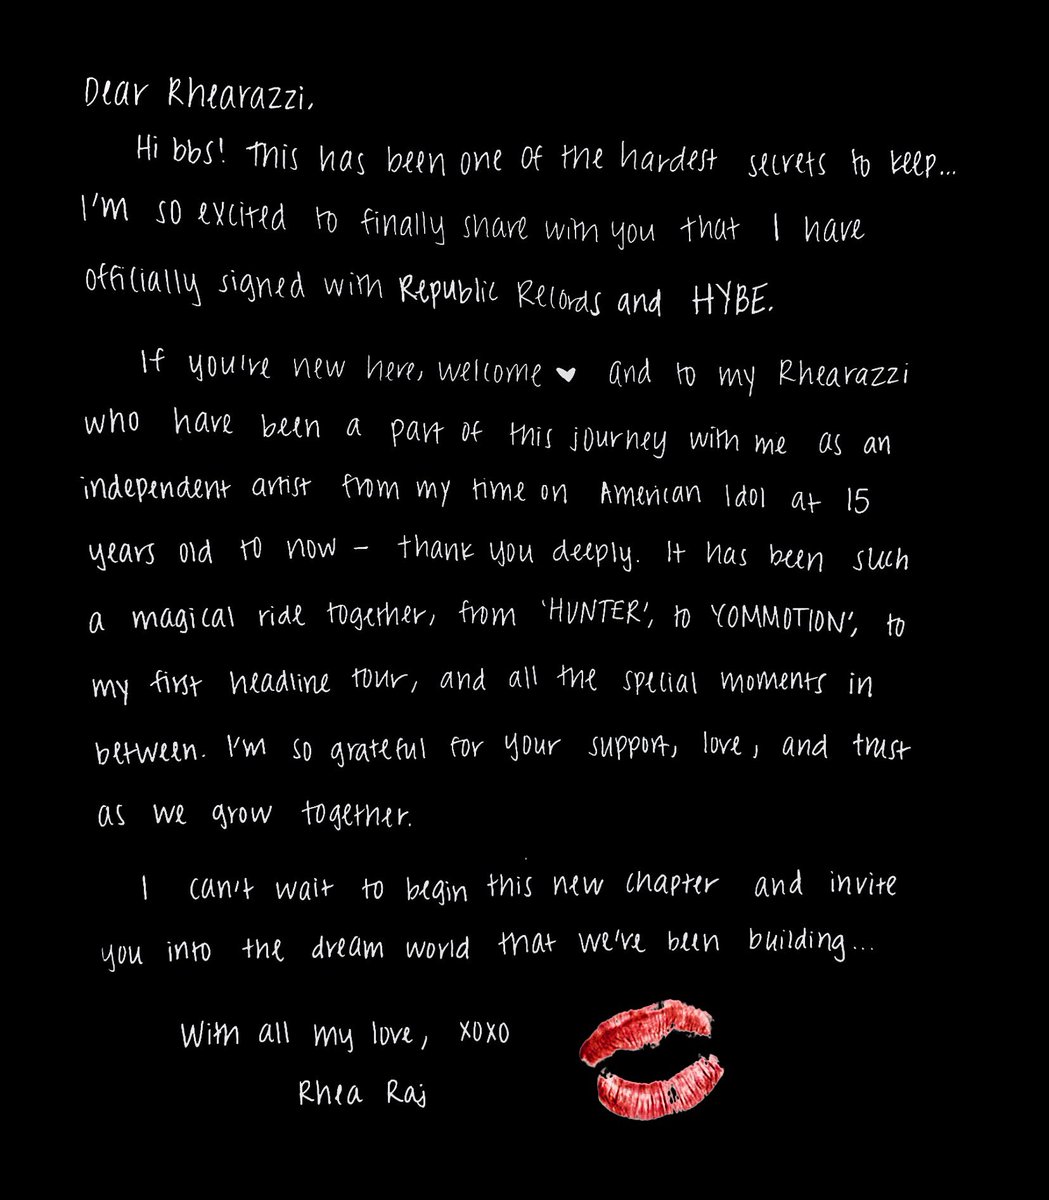 Dear Rhearazzi,
Hi bbs! This has been one of the hardest secrets to keep...
I'm so excited to finally share with you that I have
officially signed with Republic Records and HYBE.
If you're new here, welcome ♥ and to my Rhearazzi
who have been a part of this journey with me as an
independent artist from my time on American Idol at 15
years old to now – thank you deeply. It has been such
a magical ride together, from 'HUNTER', to YOMMOTION', to
my first headline tour, and all the special moments in
between. I'm so grateful for your support, love, and trust
as we grow together.
I can't wait to begin this new chapter and invite
you into the dream world that we've been building...
With all my love, xoxo
Rhea Raj